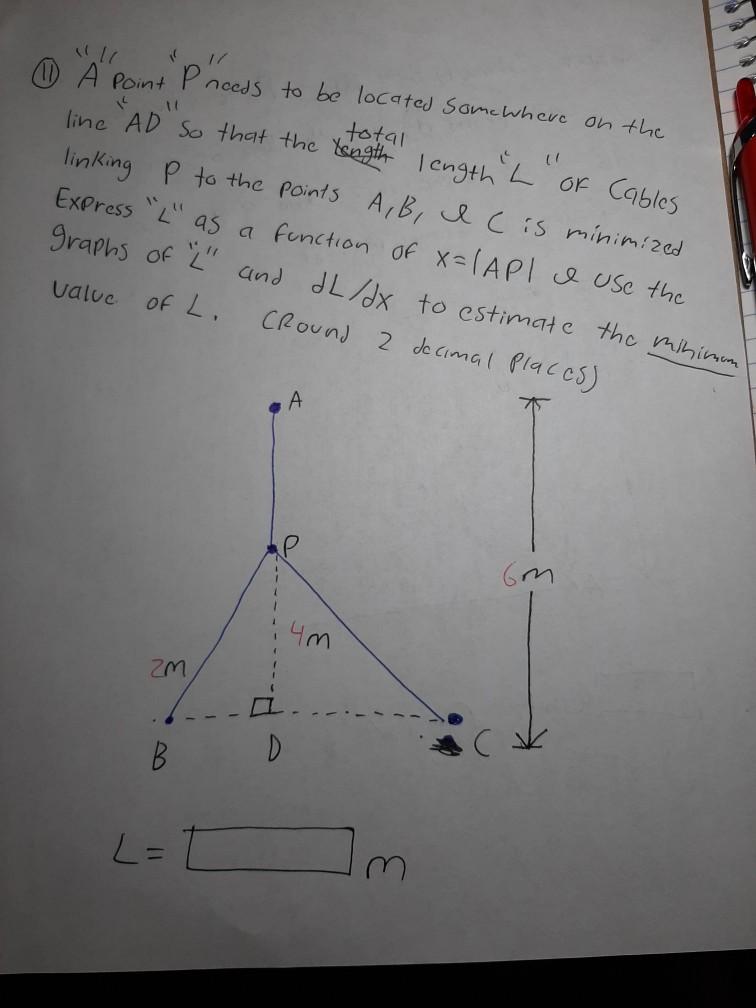 ⑪ "A" Point "P" needs to be located somewhere on the
line "AD" so that the total length "L" of cables
linking P to the points A, B, & C is minimized
Express "L" as a function of x=|AP| & use the
graphs of "L" and dL/dx to estimate the minimum
value of L. (Round 2 decimal places)
A
P
6m
4m
2m
B D C
L= m